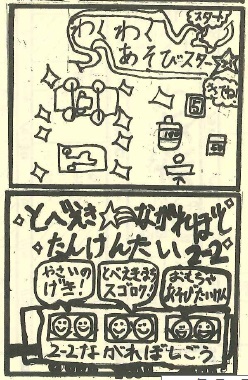 スタート
わくわく
あそびスター
さてね!
5
100
とべ えき ながれぼし
たんけんたい 2-2
やさいの
げき!
とべえきまち
スゴロク!
おもちゃ
あそびたいけん
2-2ながれぼしごう